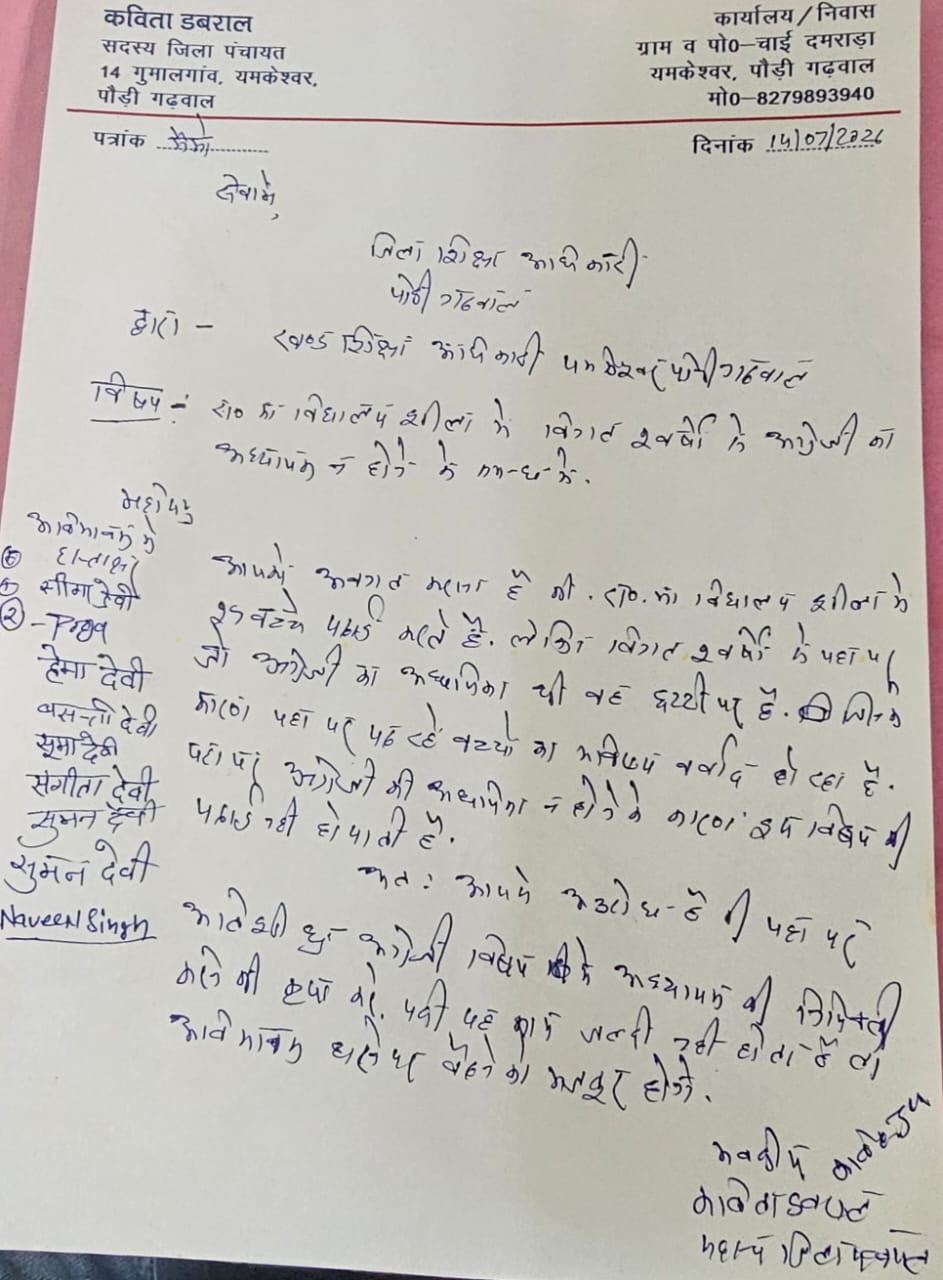 कविता डबराल
सदस्य जिला पंचायत
14 गुमालगांव, यमकेश्वर,
पौड़ी गढ़वाल
कार्यालय/निवास
ग्राम व पो0–चाई दमराड़ा
यमकेश्वर, पौड़ी गढ़वाल
मो0–8279893940
पत्रांक
दिनांक 14/07/2026
सेवामे,
जिला शिक्षा अधिकारी
पौडी गढवाल
द्वारा -
खण्ड शिक्षा अधिकारी यमकेश्वर पौडी गढवाल
विषय :- रा0 का विद्यालय शीला मे विगत २ वर्षो से अग्रेजी का
अध्यापक न होने के सम्बन्ध मे.
महोदय,
आपको अवगत कराना है की रा0. का विद्यालय शीला मे
बच्चे पढाई करते है. लेकिन विगत २ वर्षो से यहा पर
जो अग्रेजी का अध्यापिका थी वह छुट्टी पर है. जिसके
कारण यहा पर पढ रहे बच्चो का भविष्य बर्वाद हो रहा है.
यहा पर अग्रेजी की अध्यापिका न होने के कारण इस विषय की
पढाई नही हो पाती है.
अत: आपसे अनुरोध है की यहा पर
अग्रेजी विषय के अध्यापक की नियुक्ती
करने की कृपा करे. यदी यह काम जल्दी नही होता है तो
अविभावक धरने पर बैठने को मजबूर होगे.
अविभावको के
हस्ताक्षर
सीमा देवी
हेमा देवी
बसन्ती देवी
सूमा देवी
संगीता देवी
सुमन देवी
सुमन देवी
Naveen Singh
भवदीय
कविता डबराल
सदस्य जिला पंचायत